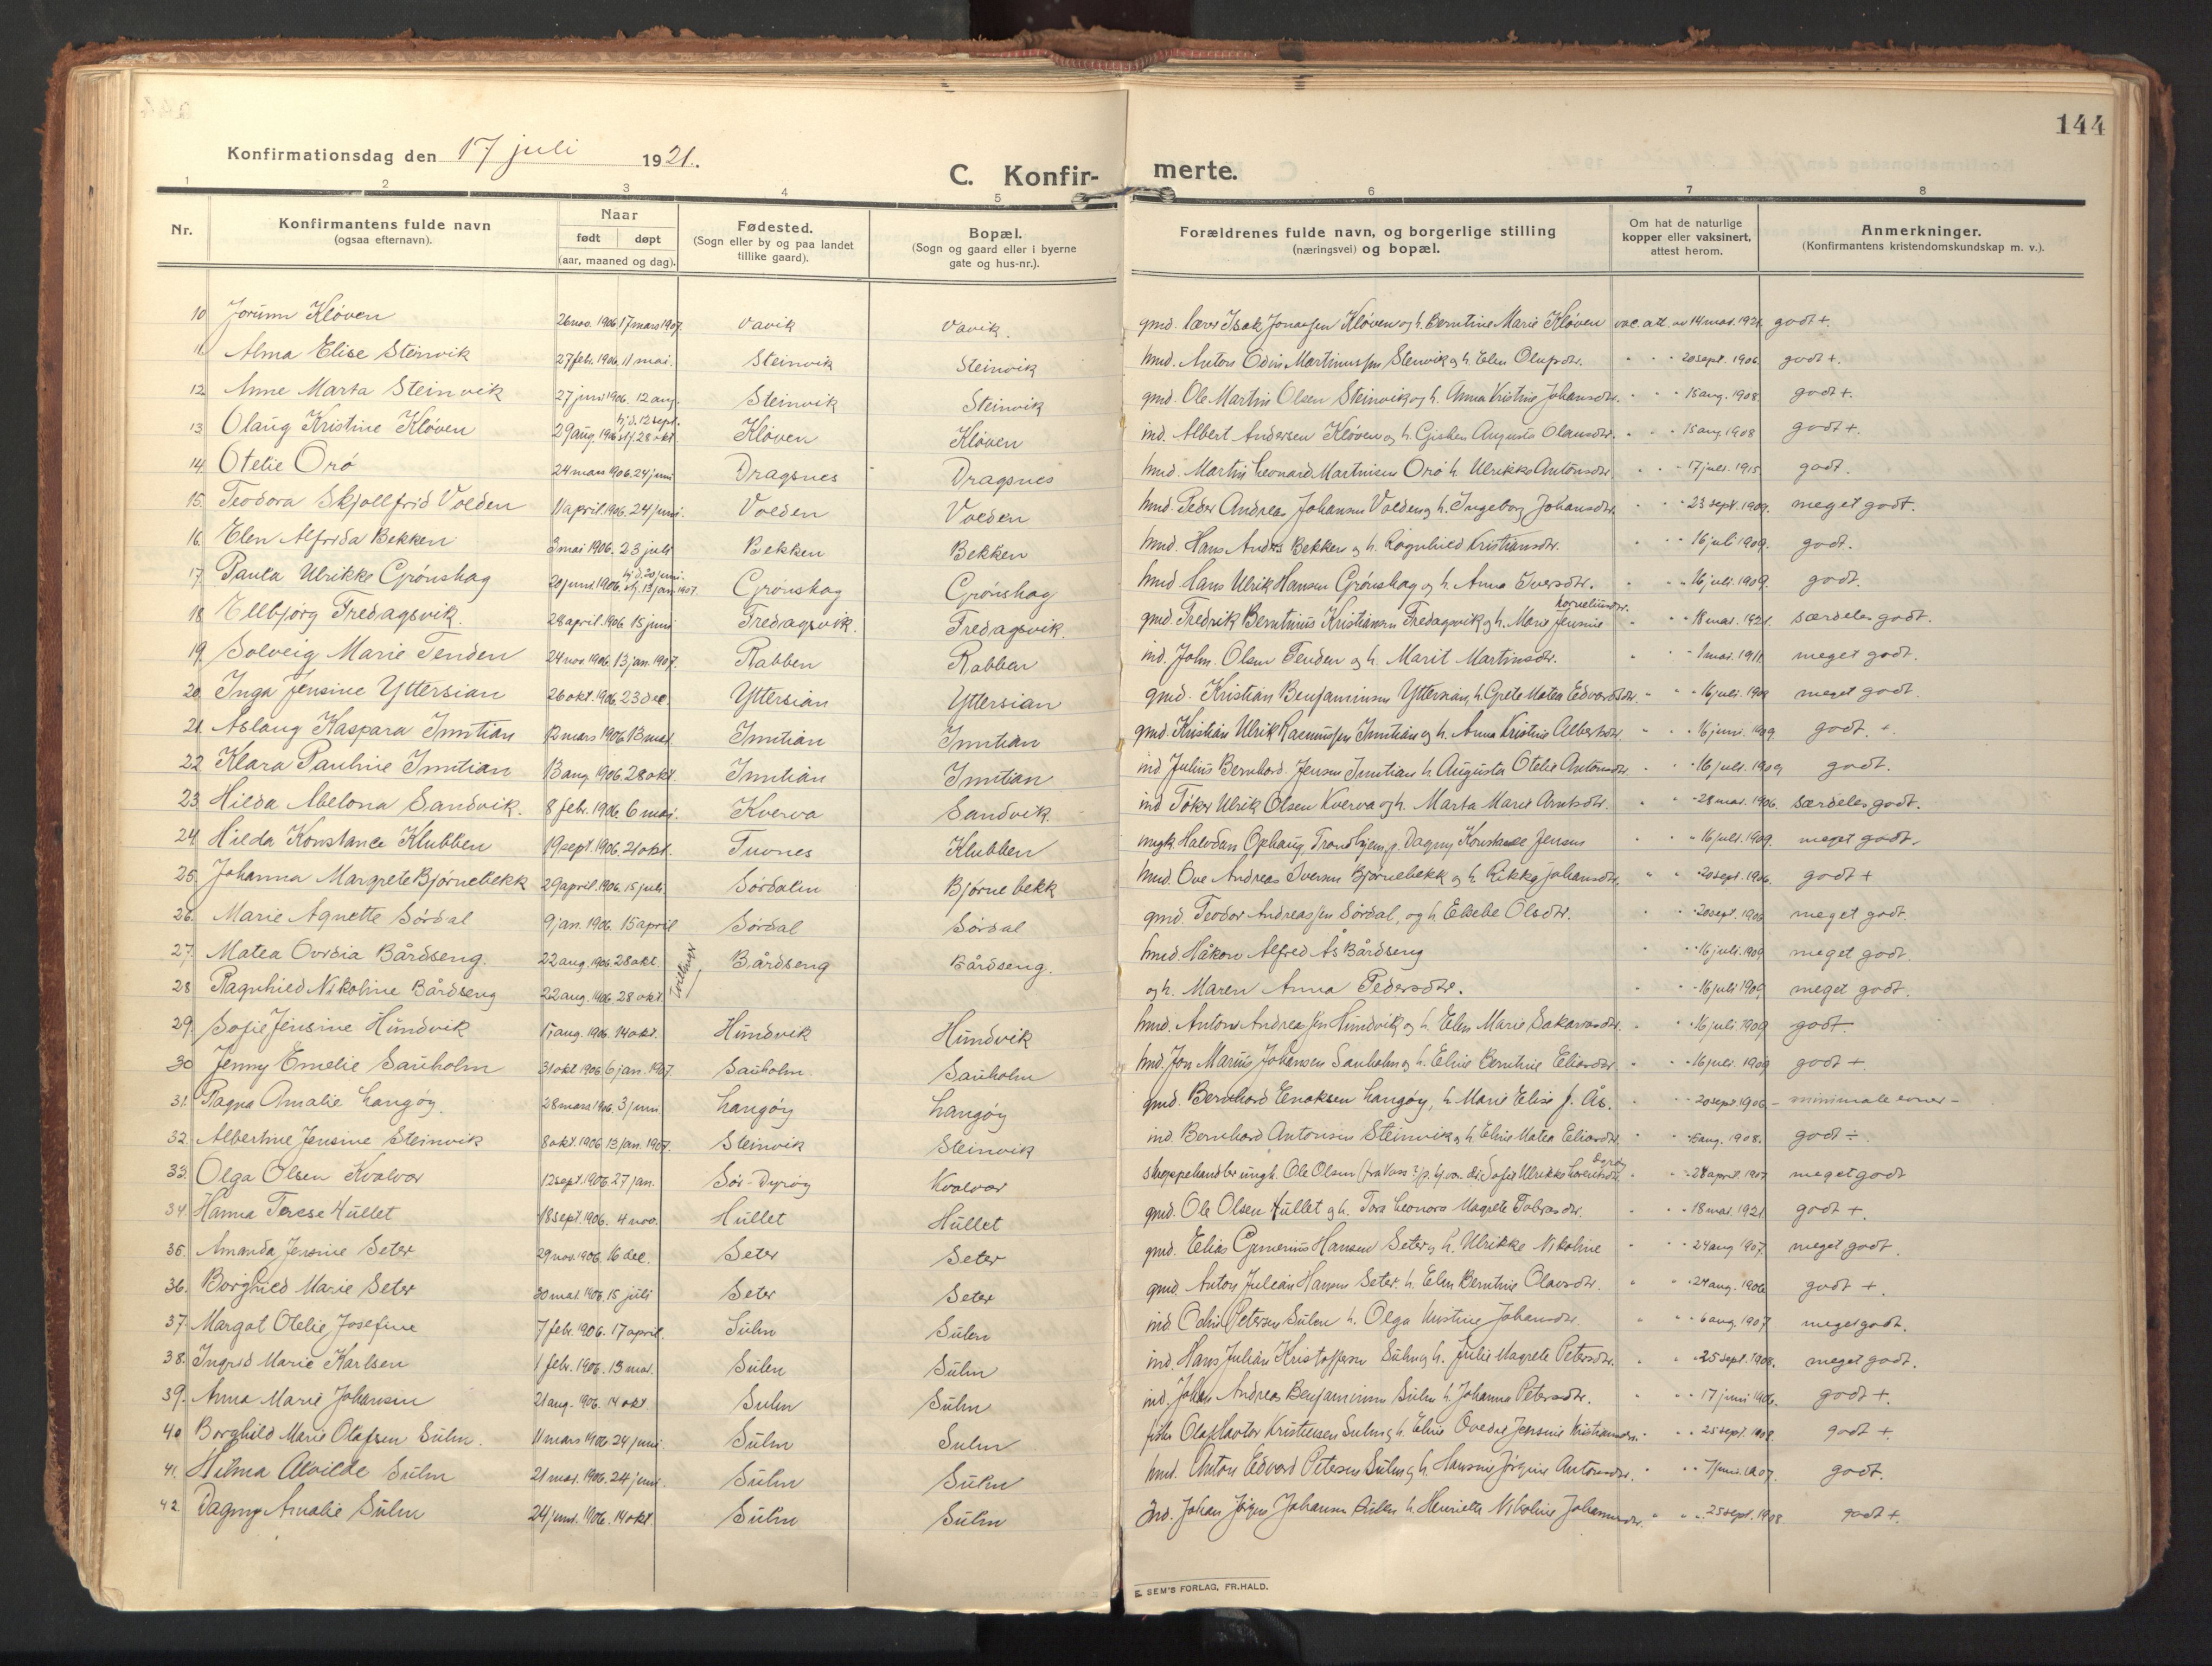 144
Konfirmationsdag den 17 juli 1921.
C. Konfir- merte.
1 2 3 4 5 6 7 8
Nr. Konfirmantens fulde navn (ogsaa efternavn). Naar født døpt (aar, maaned og dag). Fødested. (Sogn eller by og paa landet tillike gaard). Bopæl. (Sogn og gaard eller i byerne gate og hus-nr.). Forældrenes fulde navn, og borgerlige stilling (næringsvei) og bopæl. Om hat de naturlige kopper eller vaksinert, attest herom. Anmerkninger. (Konfirmantens kristendomskundskap m. v.).
10 Jorunn Kløven 26 nov. 1906 17 mars 1907. Vavik Vavik. gmd. lærer Isak Jonassen Kløven og h. Berntine Marie Kløven vac. att. av 14 mai. 1921. godt +.
11. Alma Elise Steinvik 27 febr. 1906. 11 mai. Steinvik Steinvik hmd. Anton Odin Martinussen Stenvik og h. Elen Olufsdtr. " " " 20 sept. 1906. godt +.
12. Anne Marta Steinvik 27 juni 1906. 12 aug. Steinvik Steinvik gmd. Ole Martin Olsen Steinvik og h. Anna Kristine Johansdtr. " " 15 aug. 1908 godt +.
13. Olaug Kristine Kløven 29 aug. 1906 hj.d. 12 sept. stf. 28 okt Kløven Kløven ind. Albert Andersen Kløven og h. Gjisken Augusta Olausdtr. " " 15 aug 1908 godt +.
14. Otelie Orø 24 mars 1906. 24 juni Dragsnes Dragsnes hmd. Martin Leonard Martinsen Orø h. Ulrikke Antonsdtr. " " 17 juli. 1915 godt.
15. Teodora Skjollfrid Volden 11 april 1906. 24 juni. Volden Volden hmd. Peder Andreas Johansen Volden og h. Ingeborg Johansdtr. " " 23 sept. 1909. meget godt.
16. Elen Alfrida Bekken 3 mai 1906. 23 juli Bekken Bekken hmd. Hans Anders Bekken og h. Ragnhild Kristiansdtr. " " 16 juli 1909. godt.
17. Paula Ulrikke Grønskag 20 juni 1906. hj.d. 20 juni. stf. 13 jan 1907. Grønskag Grønskag hmd Hans Ulrik Hansen Grønskag og h. Anna Iversdtr. " " 16 juli. 1909. godt.
18 Ellbjørg Fredagsvik. 28 april. 1906 15 juni Fredagsvik. Fredagsvik. gmd. Fredrik Berntinus Kristiansen Fredagsvik og h. Marie Jensine Korneliusdtr. " " 18 mai. 1921. særdeles godt.
19. Solveig Marie Tenden 24 nov 1906. 13 jan. 1907. Rabben Rabben ind. John. Olsen Tenden og h. Marit Martinsdtr. " " 1 mai. 1911 meget godt.
20. Inga Jensine Yttersian 26 okt. 1906. 23 des. Yttersian Yttersian gmd. Kristian Benjaminsen Yttersian, h. Grete Matea Edvardsdtr " " 16 juli. 1909 meget godt.
21. Aslaug Kaspara Inntian 12 mars 1906 13 mai. Inntian Inntian gmd. Kristian Ulrik Rasmussen Inntian og h. Anna Kristine Albertsdtr. " " 16 juni. 1909 godt. +.
22 Klara Pauline Inntian 13 aug. 1906. 28 okt. Inntian Inntian ind Julius Bernhard Jensen Inntian h. Augusta Otelie Antonsdtr " " 16 juli. 1909 godt.
23. Hilda Abelona Sandvik. 8 febr. 1906. 6 mai. Kverva Sandvik. ind Toker Ulrik Olsen Kverva og h. Marta Marie Arntsdtr. " " 28 mai. 1906. særdeles godt.
24. Hilda Konstance Klubben 19 sept. 1906. 21 okt. Tuvnes Klubben ungk Halvdan Ophaug, Trondhjem, p. Dagny Konstanse Jensen " " 16 juli. 1909. meget godt.
25. Johanna Margrete Bjørnebekk 29 april. 1906. 15 juli. Sørdalen Bjørnebekk hmd. Ove Andreas Iversen Bjørnebekk og h. Rikka Johansdtr. " " 20 sept. 1906. godt +
26. Marie Agnette Sørdal 9 jan. 1906. 15 april Sørdal Sørdal gmd. Teodor Andreassen Sørdal, og h. Elsebe Olsdtr. " " 20 sept. 1906 meget godt.
27. Matea Ovidia Bårdseng. 22 aug. 1906. 28 okt. tvillinger Bårdseng Bårdseng. hmd. Håkon Alfred Ås Bårdseng " " 16 juli. 1909 meget godt.
28 Ragnhild Nikoline Bårdseng 22 aug. 1906. 28 okt. og h. Maren Anna Pedersdtr. " " 16 juli 1909 meget godt.
29. Sofie Jensine Hundvik 17 aug. 1906. 14 okt. Hundvik Hundvik hmd. Anton Andreassen Hundvik og h. Elen Marie Sakariasdtr. " " 16 juli. 1909 godt
30 Jenny Emelie Sauholm 31 okt 1906 6 jan. 1907. Sauholm. Sauholm hmd Jon Marius Johansen Sauholm og h. Eline Berntine Eliasdtr " " 16 juli. 1909 godt +
31. Ragna Amalie Langøy. 28 mars 1906. 3 juni Langøy Langøy gmd. Bernhard Enoksen Langøy, h. Marie Elise J. Ås. " " 20 sept. 1906 - minimale evner -
32. Albertine Jensine Steinvik 8 okt. 1906 13 jan. 1907. Steinvik Steinvik ind. Bernhard Antonsen Steinvik og h. Eline Matea Eliasdtr " " 15 aug. 1908. godt ÷.
33. Olga Olsen Kvalvar 12 sept. 1906. 27 jan. Sør-Dyrøy Kvalvar skreppehandler ungk. Ole Olsen (fra Voss?) p. Sofie Ulrikke Dyrøy " " 28 april. 1907 meget godt
34 Hanna Terese Hullet 18 sept. 1906. 4 nov. Hullet Hullet gmd. Ole Olsen Hullet og h. Tora Leonora Magrete Tobiasdtr. " " 18 mai. 1921 godt +
35. Amanda Jensine Seter 29 nov. 1906. 16 des. Seter Seter gmd. Elias Hansen Seter og h. Ulrikke Nikoline " " 24 aug 1907. meget godt.
36. Borghild Marie Seter 30 mai. 1906. 15 juli Seter Seter gmd. Anton Julean Hansen Seter. h. Elen Berntine Olavsdtr. " " 24 aug. 1906 godt +.
37. Margot Otelie Josefine 7 febr. 1906. 17 april. Suln Sulen ind. Odin Petersen Sulen h. Olga Kristine Johansdtr. " " 6 aug. 1907 meget godt.
38. Ingrid Marie Karlsen 1 febr. 1906. 13 mai. Sulen Suln ind. Hans Julian Kristoffersen Suln og h. Julie Magrete Petersdtr. " " 25 sept. 1908. meget godt.
39. Anna Marie Johansen 21 aug. 1906. 14 okt. Suln Suln ind. Johan Andreas Benjaminsen Suln h. Johanna Petersdtr. " " 17 juni 1906. godt +
40 Borghild Marie Olafsen Suln. 11 mars 1906 24 juni Suln Suln fisker Olaf Kristensen Suln og h. Eline Jensine Kristiansdtr. " " 25 sept. 1908. godt +.
41. Hilma Alvilde Suln 21 mai. 1906. 24 juni. Suln Suln hmd. Anton Edvard Petersen Suln og h. Hansine Jørgine Antonsdtr. " " 7 juni. 1907. godt.
42. Dagny Amalie Suln 24 juni. 1906. 14 okt. Suln Suln Ind. Johan Jørgen Johansen Sulen h. Henriette Nikoline Johannesdtr. " " 25 sept. 1908 godt +.
E. SEM'S FORLAG, FR.HALD.